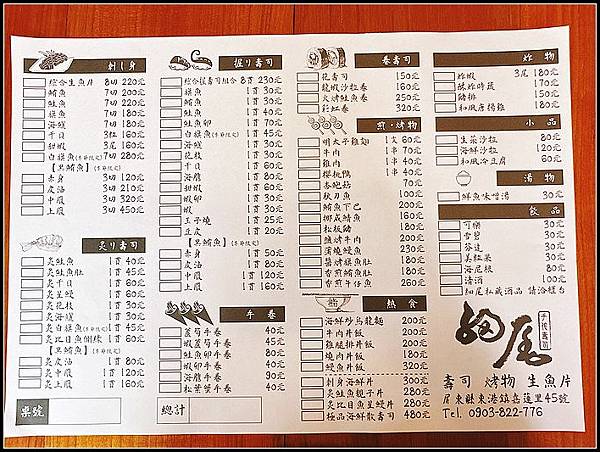 刺し身
綜合生魚片 8切 220元
鮪魚 7切 150元
旗魚
鮭魚
海鱺
干貝 3粒 160元
甜蝦 3尾 160元
白旗魚(季節限定) 7切 280元
【黑鮪魚】(季節限定)
赤身 3切 120元
皮油 3切 210元
中腹 3切 320元
上腹 3切 450元
炙り壽司
炙鮭魚 1貫 40元
炙鮭魚肚 1貫 45元
炙干貝 1貫 60元
炙星鰻 1貫 60元
炙花枝 1貫 30元
炙海鱺 1貫 30元
炙白旗魚(季節限定) 1貫 45元
炙比目魚鰭緣 1貫 60元
【黑鮪魚】(季節限定)
炙皮油 1貫 80元
炙中腹 1貫 120元
炙上腹 1貫 160元
桌號
握り壽司
綜合握壽司組合 8貫 230元
旗魚 1貫 30元
鮪魚 1貫 30元
鮭魚 1貫 40元
鮭魚卵 1貫 70元
白旗魚(季節限定) 1貫 45元
海鱺 1貫 30元
花枝 1貫 30元
干貝 1貫 60元
海膽 1貫 80元
甜蝦 1貫
蝦卵 1貫 30元
蝦 1貫 30元
玉子燒 1貫 25元
豆皮 1貫 20元
【黑鮪魚】(季節限定)
赤身 1貫 50元
皮油 1貫 80元
中腹 1貫 120元
上腹 1貫 160元
手卷
蘆筍手卷 40元
蝦蘆筍手卷 45元
鮭魚卵手卷 80元
蝦卵手卷 40元
海膽手卷 90元
松葉蟹手卷 40元
總計
卷壽司
花壽司 150元
龍蝦沙拉卷 160元
火烤鮭魚卷 250元
彩虹卷 320元
煎・烤物
明太子雞翅 1支 60元
牛肉 1串 50元
雞肉 1串 40元
櫻桃鴨 1串 40元
杏鮑菇 70元
秋刀魚 100元
鮪魚下巴 200元
挪威鯖魚 160元
松板豬 180元
鹽烤牛肉 200元
蒲燒鰻魚 230元
醬烤旗魚肚
香煎鮪魚肚 180元
香煎牛仔魚 260元
熱食
海鮮炒烏龍麵 200元
牛肉丼飯 200元
雞腿排丼飯 150元
燒肉丼飯 180元
鰻魚丼飯 320元
刺身海鮮丼 300元
炙鮭魚親子丼 280元
炙比目魚星鰻丼 380元
極品海鮮散壽司 480元
炸物
炸蝦 3尾 180元
酥炸時蔬 150元
豬排 150元
和風唐揚雞 180元
小品
生菜沙拉 80元
海鮮沙拉 110元
和風冷豆腐 60元
湯物
鮮魚味噌湯 30元
飲品
可樂 30元
雪碧 30元
芬達 30元
美紅茶 30元
海尼根 80元
清酒 100元
細尾私藏酒品 請洽櫃台
細尾
手技壽司
壽司 烤物 生魚片
屏東縣東港鎮長蓮里45號
Tel. 0903-822-776